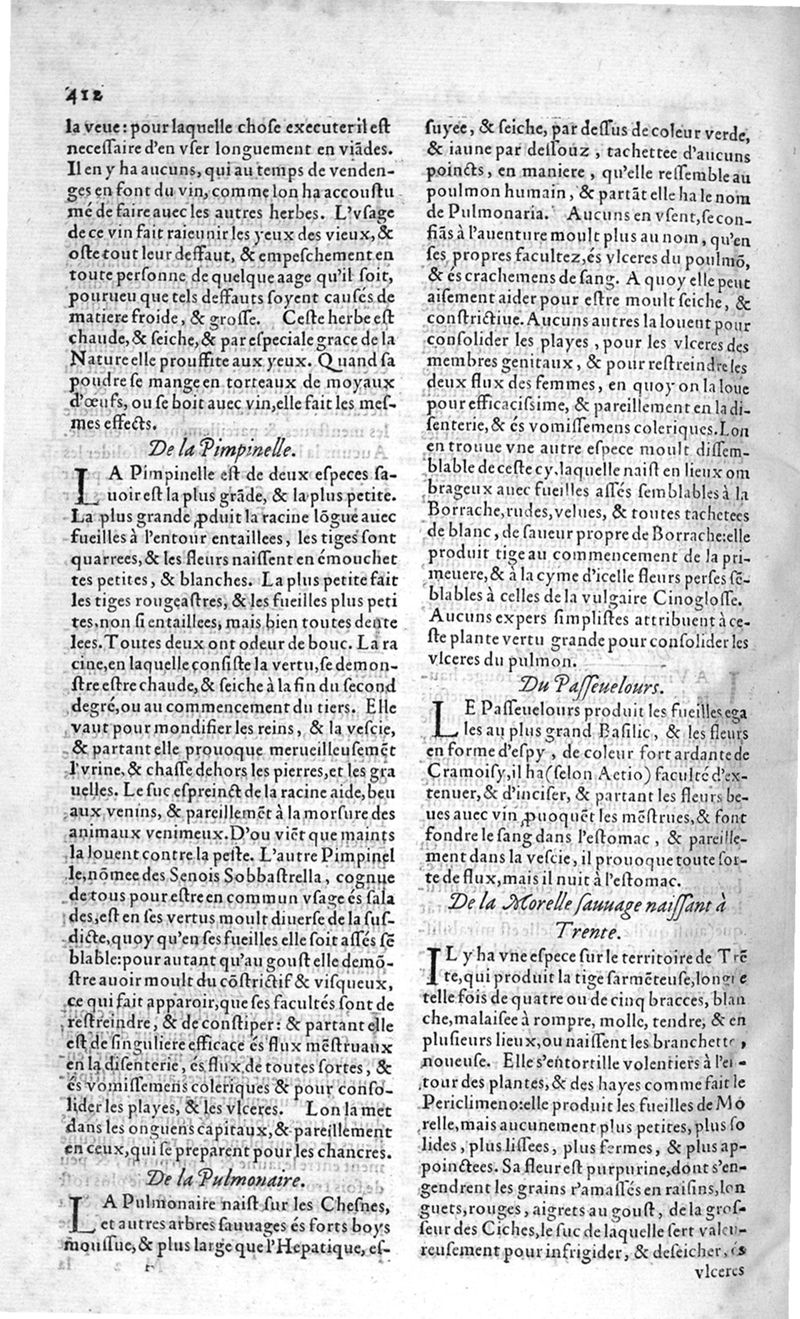 412
la veue: pour laquelle chose executer il est
necessaire d'en vser longuement en viãdes.
Il en y ha aucuns, qui au temps de venden-
ges en font du vin, comme lon ha accoustu
mé de faire auec les autres herbes. L'vsage
de ce vin fait raieunir les yeux des vieux, &
oste tout leur deffaut, & empeschement en
toute personne de quelque aage qu'il soit,
pourueu que tels deffauts soyent causés de
matiere froide, & grosse. Ceste herbe est
chaude, & seiche, & par especiale grace de la
Nature elle prouffite aux yeux. Quand sa
poudre se mange en torteaux de moyaux
d'œufs, ou se boit auec vin, elle fait les mes-
mes effects.
De la Pimpinelle.
LA Pimpinelle est de deux especes sa-
uoir est la plus grãde, & la plus petite.
La plus grande ꝓduit la racine lõgue auec
fueilles à l'entour entaillees, les tiges sont
quarrees, & les fleurs naissent en émouchet
tes petites, & blanches. La plus petite fait
les tiges rougeastres, & les fueilles plus peti
tes, non si entaillees, mais bien toutes dente
lees. Toutes deux ont odeur de bouc. La ra
cine, en laquelle consiste la vertu, se demon-
stre estre chaude, & seiche à la fin du second
degré, ou au commencement du tiers. Elle
vaut pour mondifier les reins, & la vescie,
& partant elle prouoque merueilleusemēt
l'vrine, & chasse dehors les pierres, et les gra
uelles. Le suc espreinct de la racine aide, beu
aux venins, & pareillemēt à la morsure des
animaux venimeux. D'ou viēt que maints
la louent contre la peste. L'autre Pimpinel
le, nõmee des Senois Sobbastrella, cognue
de tous pour estre en commun vsage és sala
des, est en ses vertus moult diuerse de la sus-
dicte, quoy qu'en ses fueilles elle soit assés sē
blable: pour autant qu'au goust elle demõ-
stre auoir moult du cõstrictif & visqueux,
ce qui fait apparoir, que ses facultés sont de
restreindre, & de constiper: & partant elle
est de singuliere efficace és flux mēstruaux
en la disenterie, és flux de toutes sortes, &
és vomissemens coleriques & pour conso-
lider les playes, & les vlceres. Lon la met
dans les onguens capitaux, & pareillement
en ceux, qui se preparent pour les chancres.
De la Pulmonaire.
LA Pulmonaire naist sur les Chesnes,
et autres arbres sauuages és forts boys
moussue, & plus large que l'Hepatique, es-
suyee, & seiche, par dessus de couleur verde,
& iaune par dessouz, tachettee d'aucuns
poincts, en maniere, qu'elle ressemble au
poulmon humain, & partãt elle ha le nom
de Pulmonaria. Aucuns en vsent, se con-
fiãs à l'auenture moult plus au nom, qu'en
ses propres facultez, és vlceres du poulmõ,
& és crachemens de sang. A quoy elle peut
aisement aider pour estre moult seiche, &
constrictiue. Aucuns autres la louent pour
consolider les playes, pour les vlceres des
membres genitaux, & pour restreindre les
deux flux des femmes, en quoy on la loue
pour efficacissime, & pareillement en la di-
senterie, & és vomissemens coleriques. Lon
en trouue vne autre espece moult dissem-
blable de ceste cy, laquelle naist en lieux om
brageux auec fueilles assés semblables à la
Borrache, rudes, velues, & toutes tachetees
de blanc, de saueur propre de Borrache: elle
produit tige au commencement de la pri-
meuere, & à la cyme d'icelle fleurs perses sē-
blables à celles de la vulgaire Cinoglosse.
Aucuns expers simplistes attribuent à ce-
ste plante vertu grande pour consolider les
vlceres du pulmon.
Du Passeuelours.
LE Passeuelours produit les fueilles ega
les au plus grand Basilic, & les fleurs
en forme d'espy, de coleur fort ardante de
Cramoisy, il ha (selon Aetio) faculté d'ex-
tenuer, & d'inciser, & partant les fleurs be-
ues auec vin ꝓuoquēt les mēstrues, & font
fondre le sang dans l'estomac, & pareille-
ment dans la vescie, il prouoque toute sor-
te de flux, mais il nuit à l'estomac.
De la Morelle sauuage naissant à
Trente.
IL y ha vne espece sur le territoire de Trē
te, qui produit la tige sarmēteuse, longue
telle fois de quatre ou de cinq bracces, blan
che, malaisee à rompre, molle, tendre, & en
plusieurs lieux, ou naissent les branchettes,
noueuse. Elle s'entortille volentiers à l'en-
tour des plantes, & des hayes comme fait le
Periclimeno: elle produit les fueilles de Mo
relle, mais aucunement plus petites, plus so
lides, plus lissees, plus fermes, & plus ap-
poinctees. Sa fleur est purpurine, dont s'en-
gendrent les grains r'amassés en raisins, lon
guets, rouges, aigrets au goust, de la gros-
seur des Ciches, le suc de laquelle sert valeu-
reusement pour infrigider, & deseicher, és
vlceres